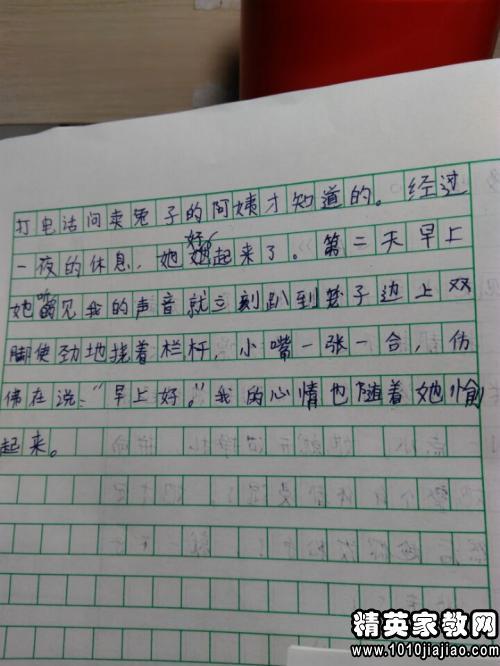 打电话问卖兔子的阿姨才知道的。经过
一夜的休息，她好起来了。第二天早上
她听见我的声音就立刻趴到笼子边上双
脚使劲地挠着栏杆，小嘴一张一合，仿
佛在说：“早上好。”我的心情也随着她愉
起来。
精英家教网
www.1010jiajiao.com